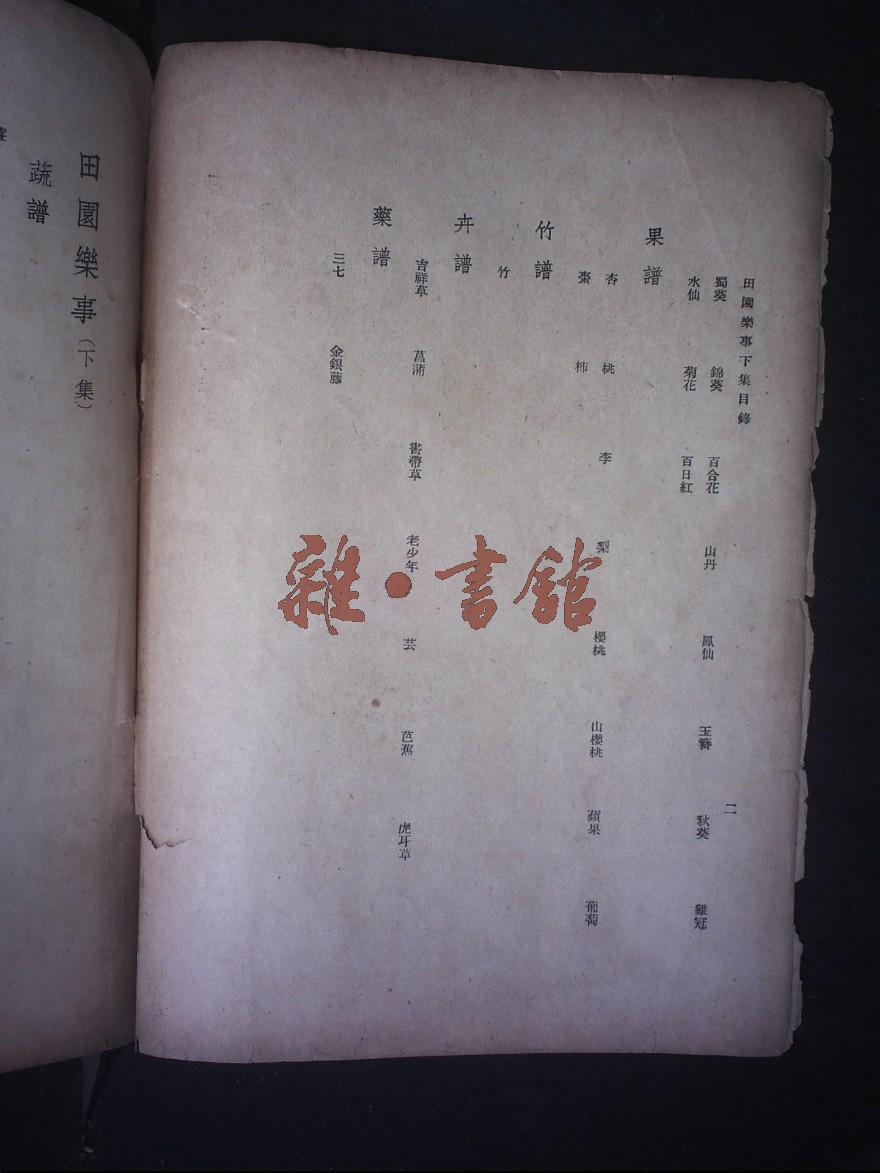 田園樂事下集目錄 二
蜀葵 錦葵 百合花 山丹 鳳仙 玉簪 秋葵 雞冠
水仙 菊花 百日紅
果譜
杏 桃 李 梨 櫻桃 山櫻桃 蘋果 葡萄
棗 柿
竹譜
竹
卉譜
吉祥草 菖蒲 書帶草 老少年 芸 芭蕉 虎耳草
藥譜
三七 金銀藤
田園樂事(下集)
蔬譜
雜·書館